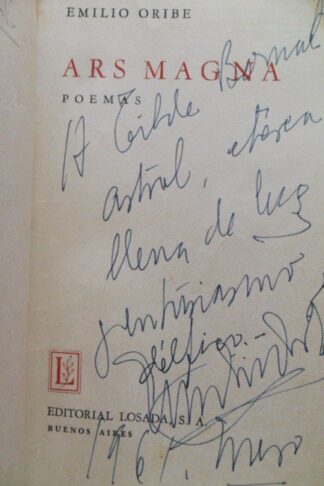 EMILIO ORIBE
ARS MAGNA
POEMAS
A Tilde Bernal
astral, etérea
llena de luz
y entusiasmo
délfico.-
L
EDITORIAL LOSADA, S. A.
BUENOS AIRES
1961.